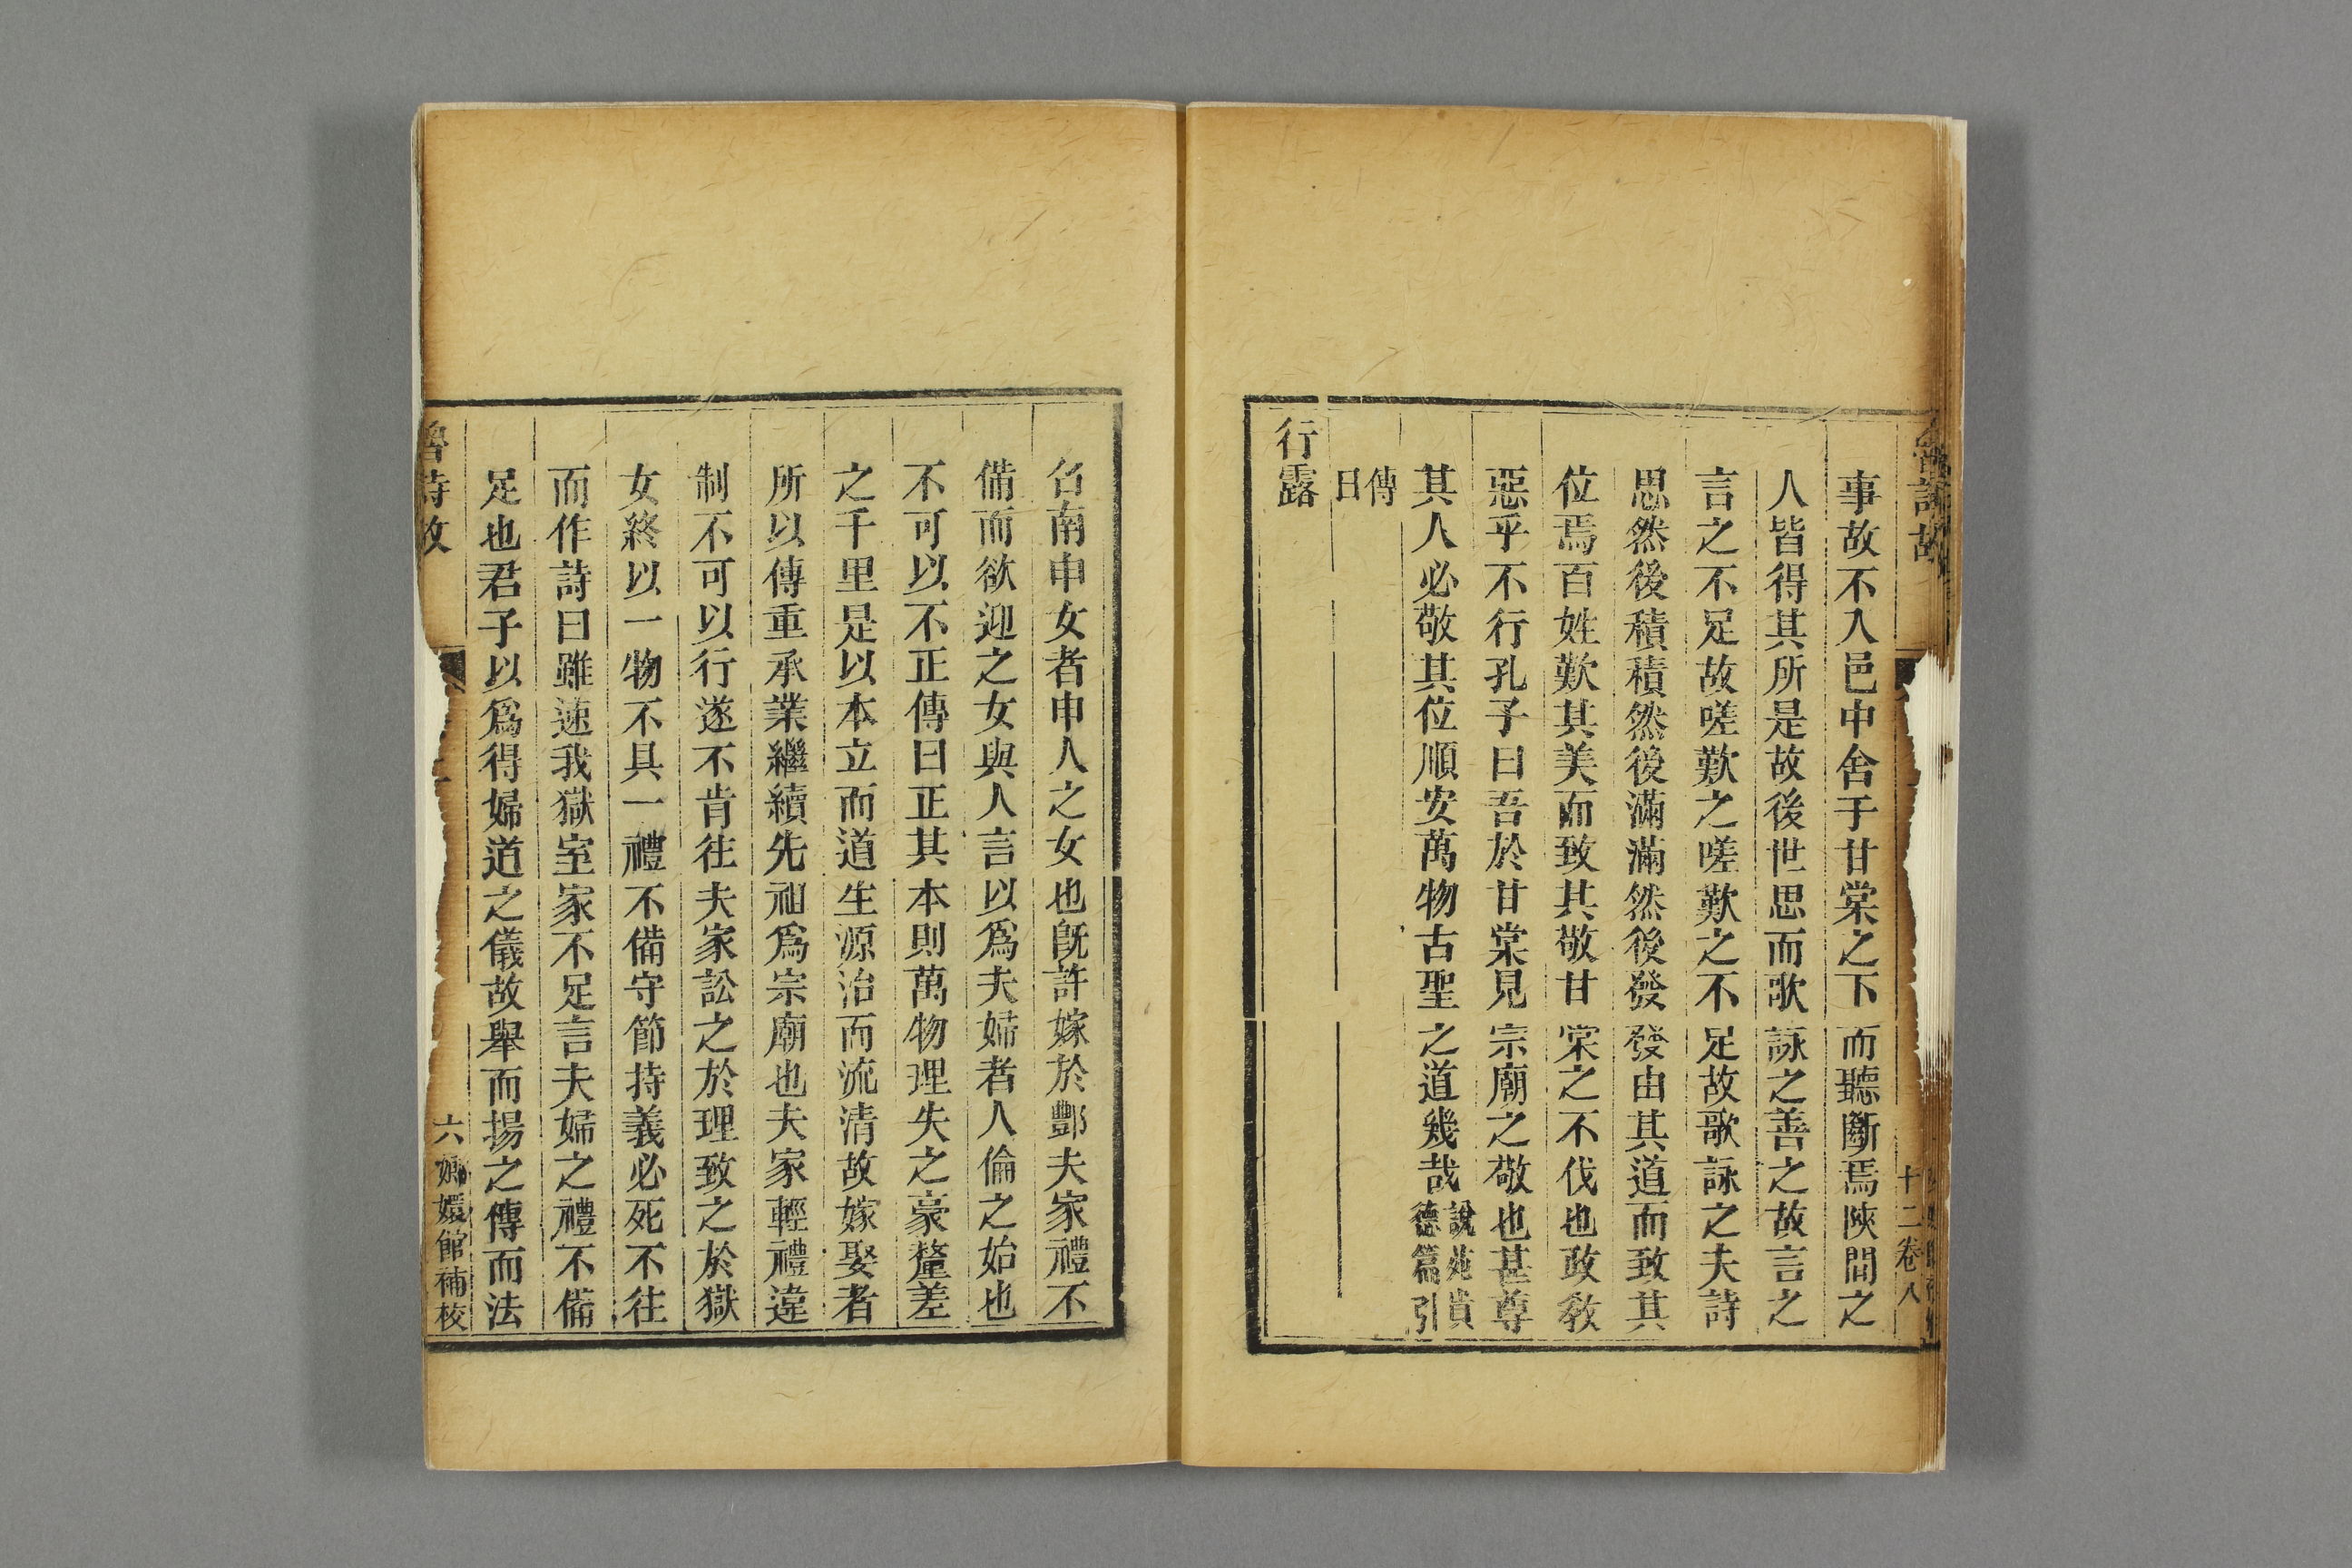 魯詩故
十二卷八
事故不入邑中舍于甘棠之下而聽斷焉陝間之
人皆得其所是故後世思而歌詠之善之故言之
言之不足故嗟歎之嗟歎之不足故歌詠之夫詩
思然後積積然後滿滿然後發發由其道而致其
位焉百姓歎其美而致其敬甘棠之不伐也政教
惡乎不行孔子曰吾於甘棠見宗廟之敬也甚尊
其人必敬其位順安萬物古聖之道幾哉說苑貴德篇引
傳曰
行露
召南申女者申人之女也旣許嫁於酆夫家禮不
備而欲迎之女與人言以爲夫婦者人倫之始也
不可以不正傳曰正其本則萬物理失之豪釐差
之千里是以本立而道生源治而流清故嫁娶者
所以傳重承業繼續先祖爲宗廟也夫家輕禮違
制不可以行遂不肯往夫家訟之於理致之於獄
女終以一物不具一禮不備守節持義必死不往
而作詩曰雖速我獄室家不足言夫婦之禮不備
足也君子以爲得婦道之儀故舉而揚之傳而法
魯詩故
六 嫏嬛館補校